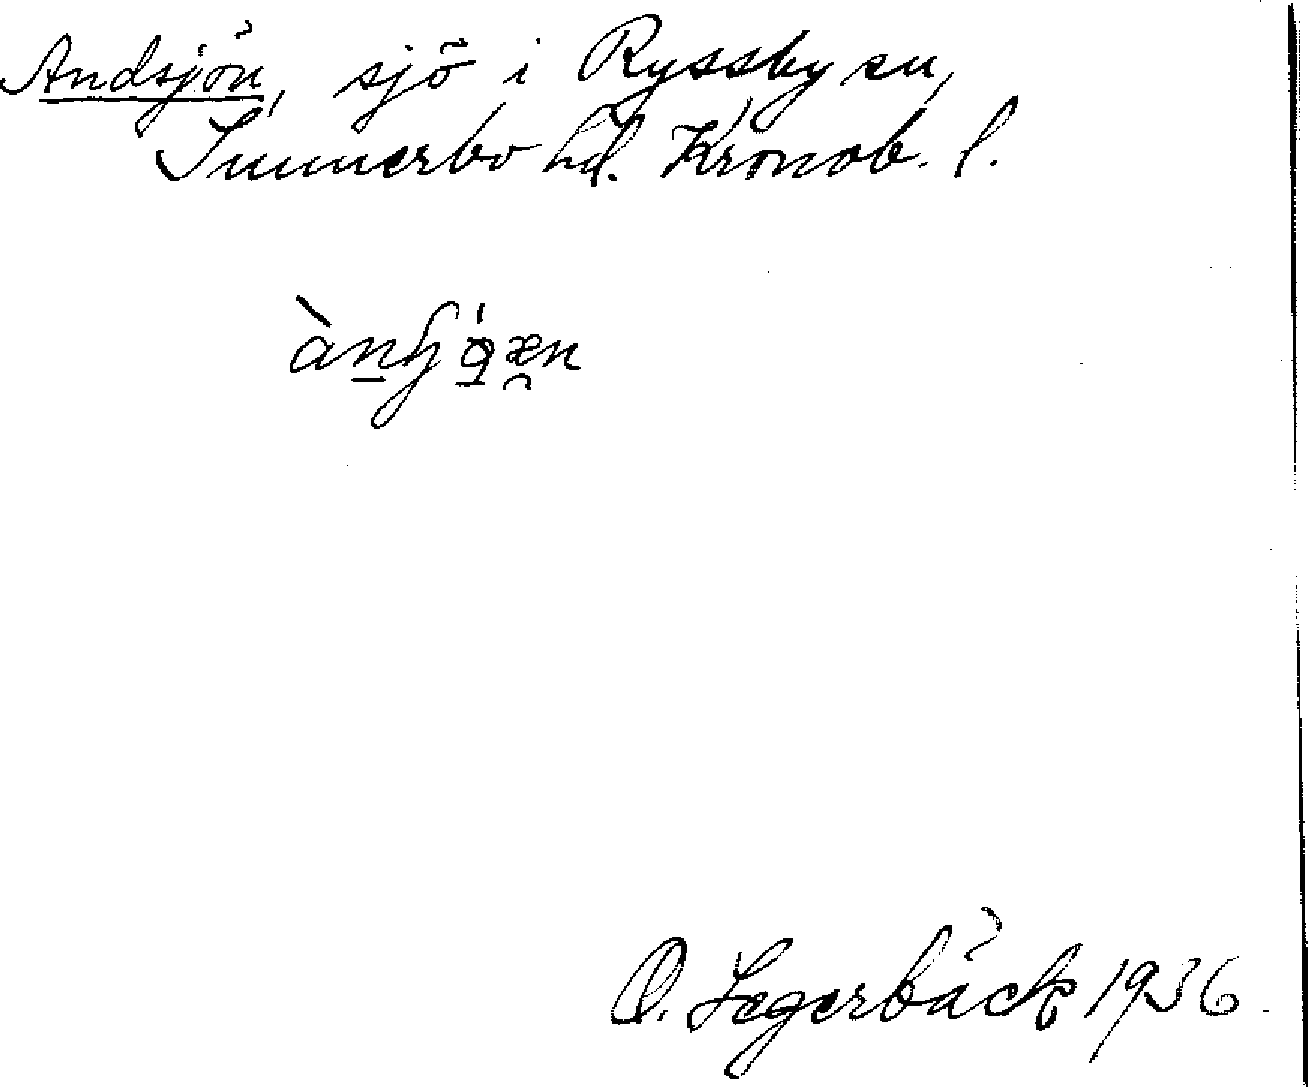 Andsjön, sjö i Ryssby sn,
Sunnerbo hd. Kronob. l.
O. Segerbäck 1936.